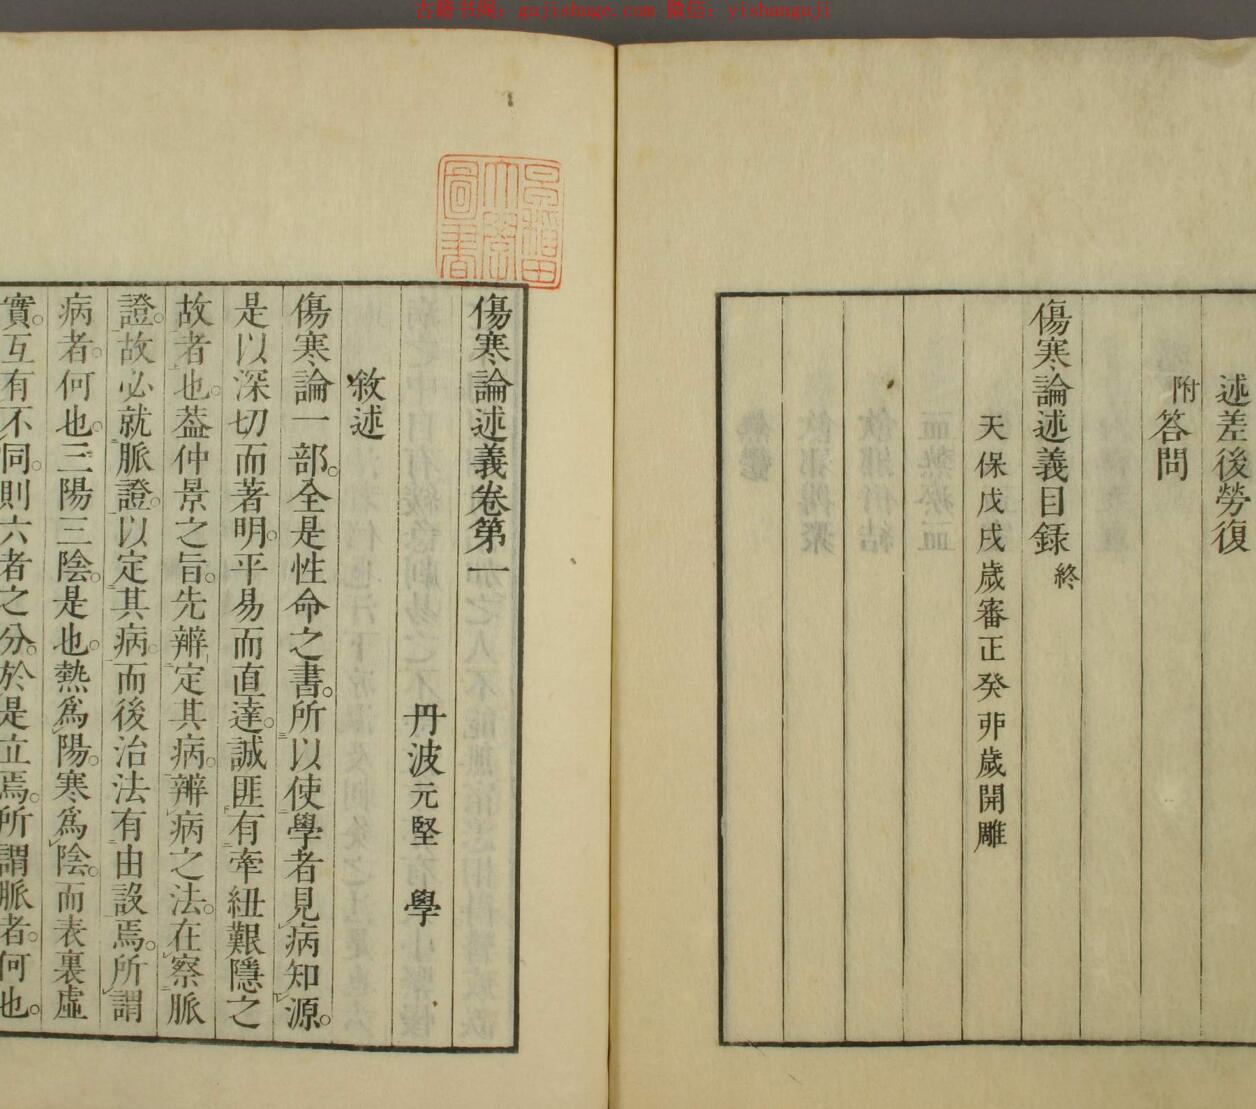 古籍书阁：gujishuge.com 微信：yishanguji
述差後勞復
附答問
傷寒論述義目録終
天保戊戌歲審正癸丣歲開雕
早稲田大學圖書
傷寒論述義卷第一
丹波元堅 學
敘述
傷寒論一部。全是性命之書。所以使學者見病知源。
是以深切而著明。平易而直達。誠匪有牽紐艱隱之
故者也。葢仲景之旨。先辨定其病。辨病之法。在察脈
證。故必就脈證。以定其病。而後治法有由設焉。所謂
病者。何也。三陽三陰。是也。熱爲陽。寒爲陰。而表裏虛
實。互有不同。則六者之分。於是立焉。所謂脈者。何也。